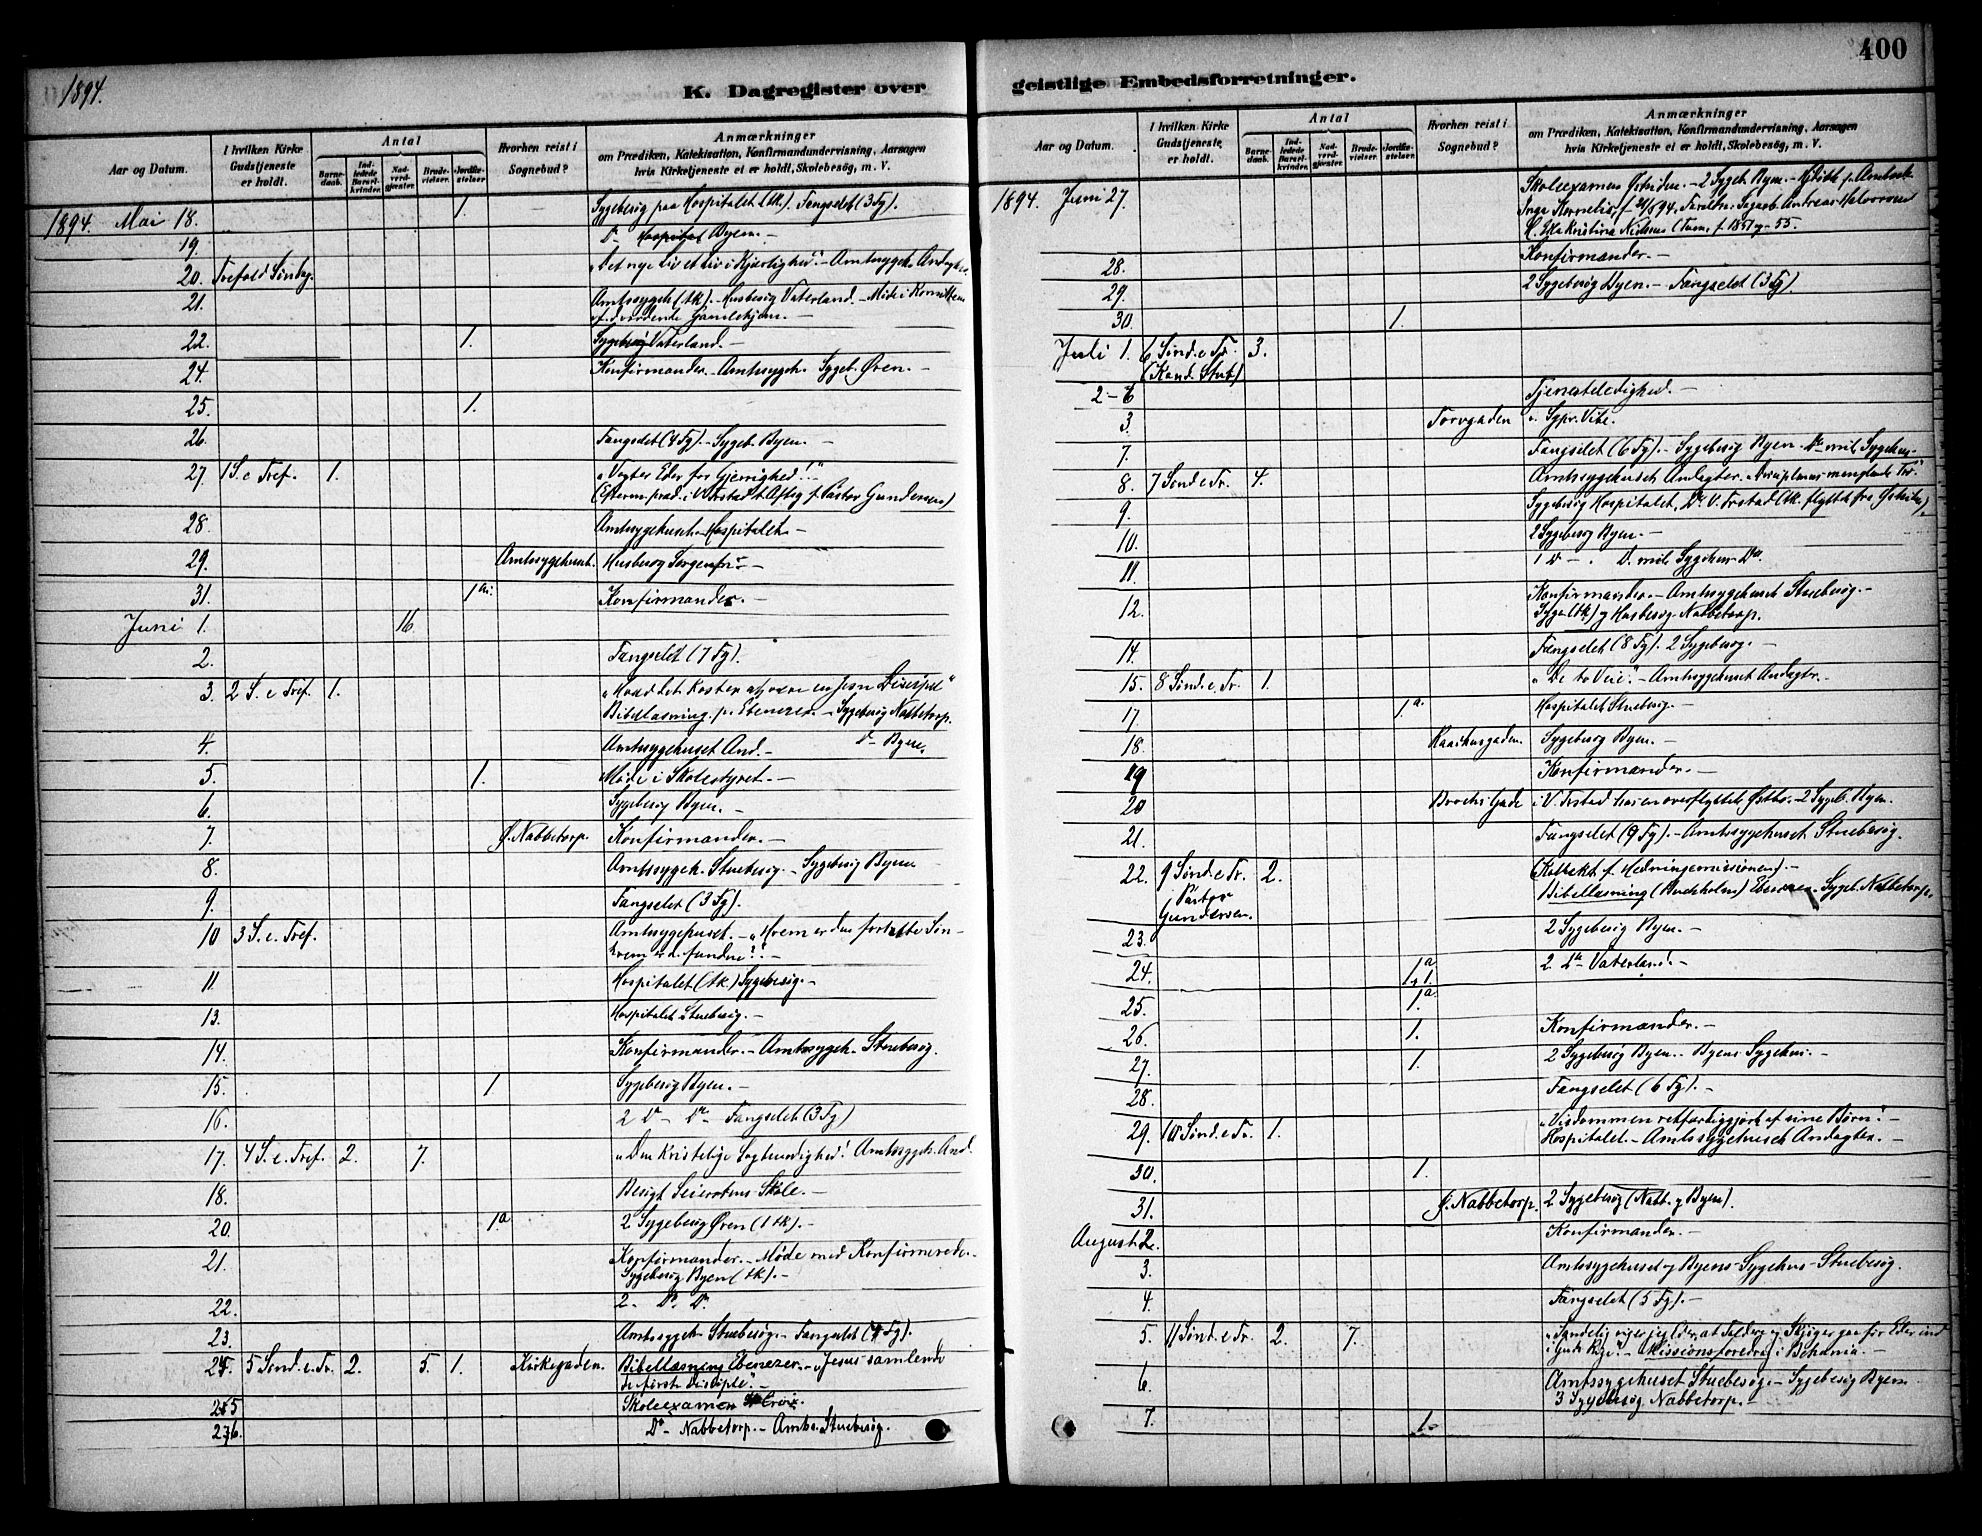 1894.
K. Dagregister over
Aar og Datum.
I hvilken Kirke Gudstjeneste er holdt.
Antal
Barne-daab.
Ind-ledede Barsel-kvinder.
Nad-verd-gjester.
Brude-vielser.
Jordfæ-stelser.
Hvorhen reist i Sognebud?
Anmærkninger
om Prædiken, Katekisation, Konfirmandundervisning, Aarsagen
hvis Kirketjeneste ei er holdt, Skolebesøg, m. V.
1894. Mai 18. 1. Sygebesøg paa Hospitalet (tk.). Fængslet (3 Fg).
19. Do Hospital Byen. –
20. Trefold. Søndag. „Det nye Liv et Liv i Kjærlighed". – Amtssygeh. Andagt.
21. Amtssygeh (tk). – Husbesøg Vaterland. – Møte i Komiteen
22. 1. Sygebesøg Vaterland. –
24. Konfirmander. – Amtssygeh. Sygeb. Øren. –
25. 1.
26. Fængslet (4 Fg). – Sygeb. Byen. –
27. 1 S. e. Tref. 1. „Vogter Eder for Gjerrighed!"
(Efterm. præd. i V. Frstad t. Aftlg f. Pastor Gundersen)
28. Amtssygehuset. Hospitalet. –
29. Amtssygehuset. Husbesøg Sorgenfri –
31. 1 a. Konfirmander. –
Juni 1. 16.
2. Fængslet (7 Fg).
3. 2 S. e. Tref. 1. „Hvad det koster at være en Jesu Discipel"
Bibellæsning. p. Ebenezer. – Sygebesøg Nabbetorp.
Do Byen.
4. Amtssygehuset And. –
5. 1. Møde i Skolestyret. –
6. Sygebesøg Byen. –
7. Ø. Nabbetorp. Konfirmander. –
8. Amtssygeh. Stuebesøg. – Sygebesøg Byen.
9. Fængslet (3 Fg).
10 3 S. e. Tref. Amtssygehuset. – „Hvem er den fortabte Søn –
hvem er d. fundne?" –
11. Hospitalet (tk.) Sygebesøg. –
13. Hospitalet Stuebesøg. –
14. Konfirmander. – Amtssygeh. Stuebesøg.
15. 1. Sygebesøg Byen. –
16. 2 Do – Do Fængslet (3 Fg)
17. 4 S. e. Tref. 2. 7. „Den Kristelige Sagtmodighed". Amtssygeh. And.
18. Besøgt Seierstens Skole. –
20. 1 a 2 Sygebesøg Øren (1 tk). –
21. Konfirmander. – Møde med Konfirmerede.
Sygebesøg Byen (tk). –
22. 2. Do Do
23. Amtssygeh. Stuebesøg. – Fængslet (4 Fg).
24. 5 Sønd. e. Tr. 2. 5. 1. Kirkegaden. Bibellæsning Ebenezer. – „Jesus samlende
de første Disciple". –
25 Skoleexamen St Croix.
26. Do Nabbetorp. – Amtss. Stuebesøg.
400
geistlige Embedsforretninger.
Aar og Datum.
I hvilken Kirke Gudstjeneste er holdt.
Antal
Barne-daab.
Ind-ledede Barsel-kvinder.
Nad-verd-gjester.
Brude-vielser.
Jordfæ-stelser.
Hvorhen reist i Sognebud?
Anmærkninger
om Prædiken, Katekisation, Konfirmandundervisning, Aarsagen
hvis Kirketjeneste ei er holdt, Skolebesøg, m. V.
1894. Juni 27. Skoleexamen Østsiden. – 2 Sygeb. Byen. –
28. Konfirmander. –
29. 2 Sygebesøg Byen. – Fængslet (3 Fg).
30. 1.
Juli 1. 6 Sønd. e. Tr. 3.
(Kand. Stub)
2 – 6 Tjenesteledighed. –
3. Torvgaden
7. Fængslet (6 Fg). – Sygebesøg Byen. Do mil. Sygehus. –
8. 7 Sønd. e. Tr. 4. Amtssygehuset Andagter.
9. Sygebesøg Hospitalet, Do V. Frstad (tk. flyttet fra Østsiden).
10. 2 Sygebesøg Byen. –
11. 1 Do – . D. mil. Sygehus Do
12. Konfirmander. – Amtssygehuset Stuebesøg. –
og Husbesøg Nabbetorp.
14. Fængslet (8 Fg). 2 Sygebesøg. –
15. 8 Sønd. e. Tr. 1. „De to Veie". – Amtssygehuset Andagter. –
17. 1 a. Hospitalet Stuebesøg. –
18. Raadhusgaden. Sygebesøg Byen. –
19 Konfirmander. –
20 Brochs Gade i V. Frstad hos en overflyttet Østbo. – 2 Sygeb. Byen.
21. Fængslet (9 Fg). – Amtssygehuset Stuebesøg.
22. 9 Sønd. e. Tr. 2. (Kollekt f. Hedningemissionen) –
Pastor Gundersen. Bibellæsning (Buchholm) Ebenezer. Sygeb. Nabbetorp.
23. 2 Sygebesøg Byen. –
24. 1 a 1. 2 Do Vaterland. –
25. 1 a.
26 1. Konfirmander. –
27. 1. 2 Sygebesøg Byen. – Byens Sygehus. –
28. Fængslet (6 Fg). –
29. 10 Sønd. e. Tr. 1. „Visdommen retfærdiggjort af sine Børn". –
Hospitalet. – Amtssygehuset Andagter. –
30. 1.
31. Ø. Nabbetorp. 2 Sygebesøg (Nabb. og Byen).
August 2. Konfirmander. –
3. Amtssygehuset og Byens Sygehus – Stuebesøg.
4. Fængslet (5 Fg). –
5. 11 Sønd. e. Tr. 2. 7. „Sandelig siger jeg Eder, at Toldere og Skjøger gaa før Eder ind
i Guds Rige". – Missionsforedrag i Bethania. –
6. Amtssygehuset Stuebesøg. – Sygebesøg Byen
3 Sygebesøg Nabbetorp. –
7. 1.